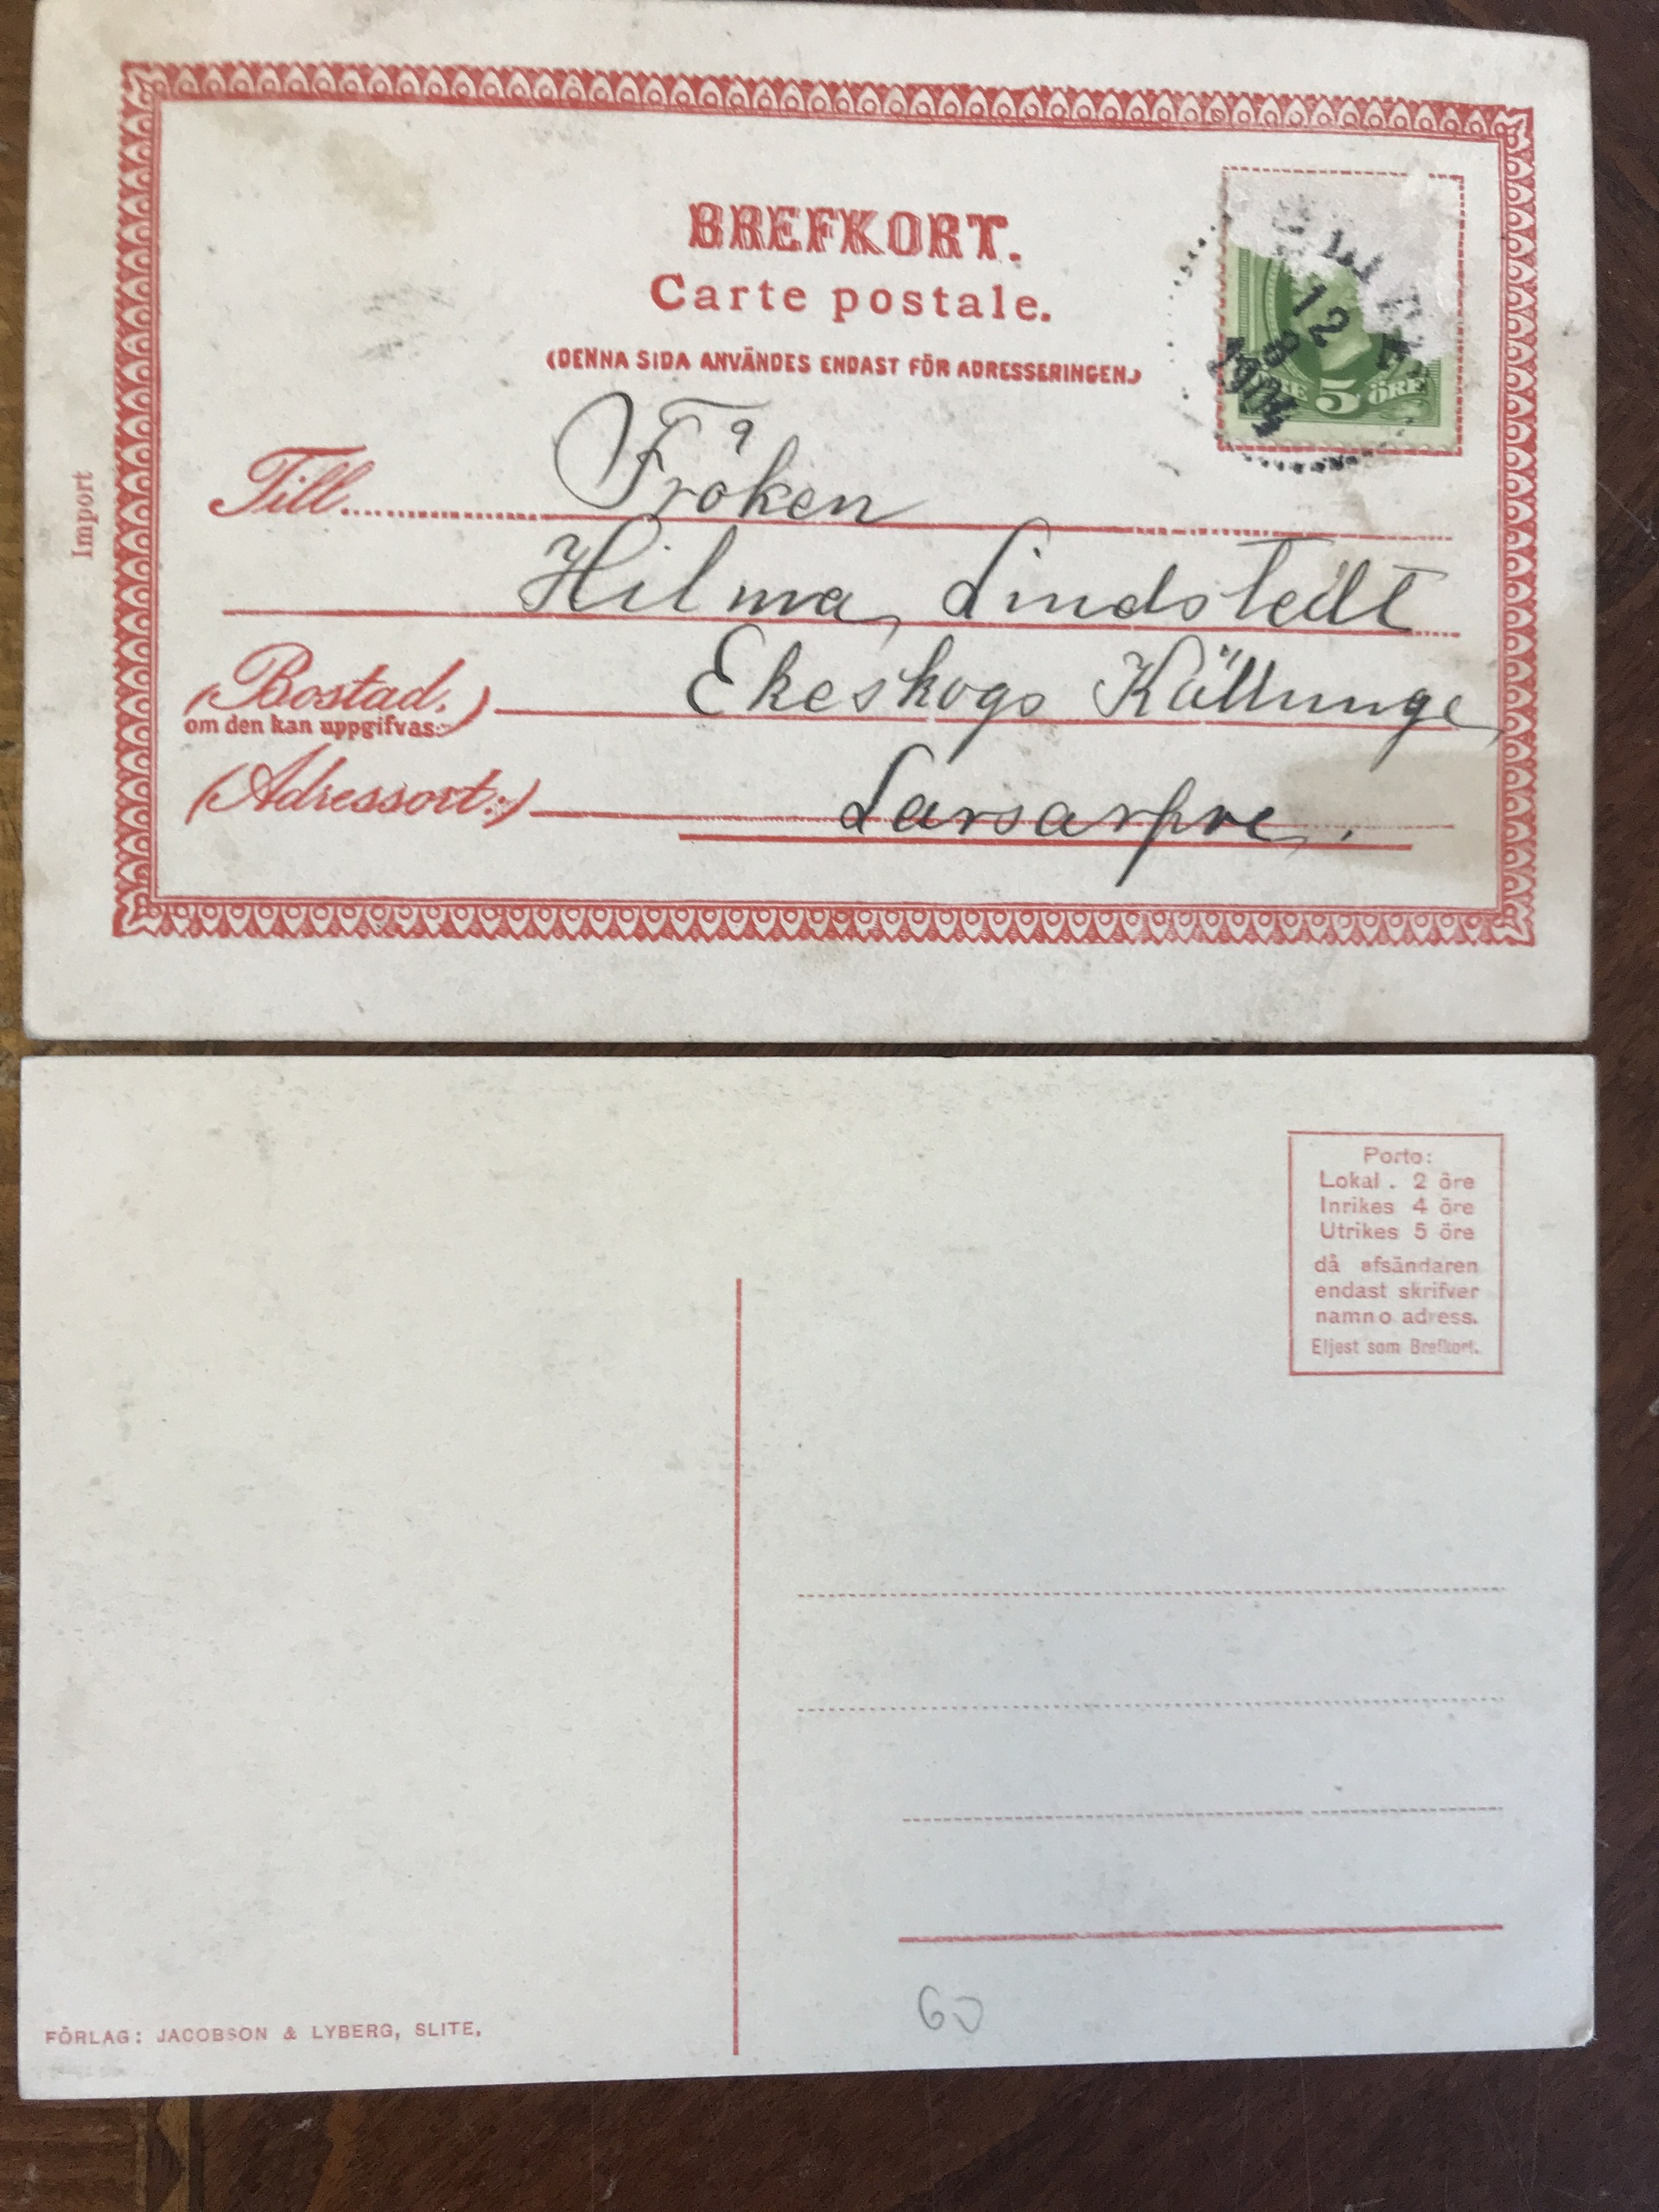 BREFKORT.
Carte postale.
(DENNA SIDA ANVÄNDES ENDAST FÖR ADRESSERINGEN.)
12
8
1904
5 ÖRE
Import
Till Fröken
Hilma Lindstedt
(Bostad.) Ekeskogs Källunge
om den kan uppgifvas:
(Adressort:) Larsarfve.
Porto:
Lokal . 2 öre
Inrikes 4 öre
Utrikes 5 öre
då afsändaren
endast skrifver
namn o. adress.
Eljest som Brefkort.
60
FÖRLAG: JACOBSON & LYBERG, SLITE,